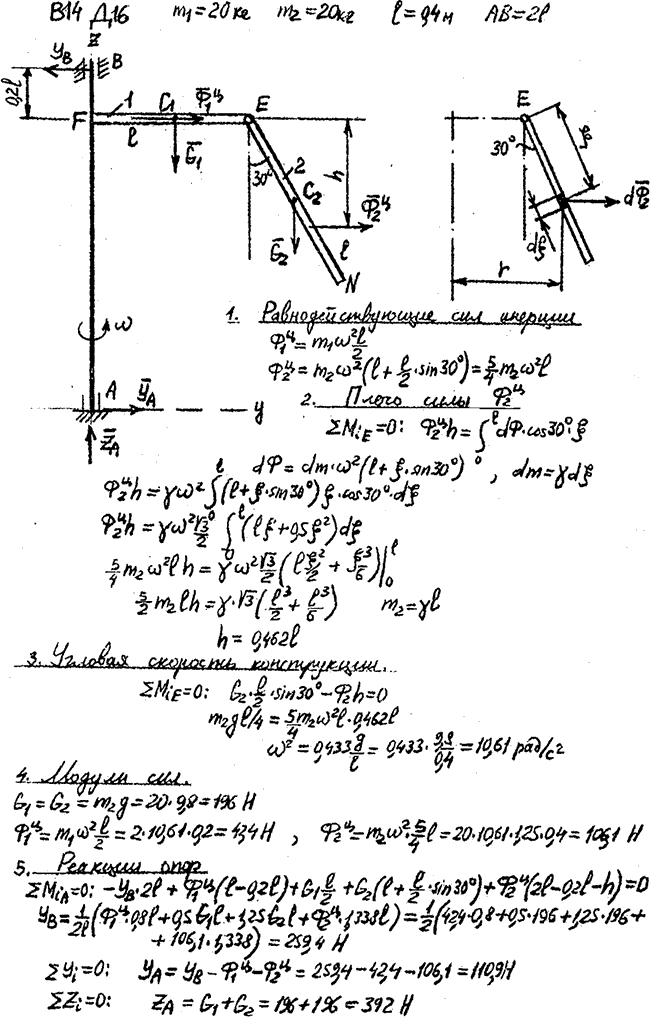 В14 Д16 m₁=20кг m₂=20кг l=0,4м AB=2l
z
y_B B
0,2l
F 1 C₁ Φ̄₁ᶣ E
l
Ḡ₁
30° 2 h
C₂ Φ̄₂ᶣ
Ḡ₂ l
N
ω
A Ȳ_A y
Z̄_A
E
30° ξ
dΦ̄₂
dξ
r
1. Равнодействующие сил инерции
Φ₁ᶣ=m₁ω²l/2
Φ₂ᶣ=m₂ω²(l+l/2·sin30°)=5/4 m₂ω²l
2. Плечо силы Φ₂ᶣ
ΣM_iE=0: Φ₂ᶣh=∫₀ˡdΦ·cos30°·ξ
dΦ=dm·ω²(l+ξ·sin30°), dm=γdξ
Φ₂ᶣh=γω²∫₀ˡ(l+ξ·sin30°)ξ·cos30°·dξ
Φ₂ᶣh=γω²√3/2 ∫₀ˡ(lξ+0,5ξ²)dξ
5/4 m₂ω²lh=γω²√3/2(lξ²/2+ξ³/6)|₀ˡ
5/2 m₂lh=γ·√3(l³/2+l³/6) m₂=γl
h=0,462l
3. Угловая скорость конструкции.
ΣM_iE=0: G₂·l/2·sin30°-Φ₂h=0
m₂gl/4=5m₂/4 ω²l·0,462l
ω²=0,433g/l=0,433·9,8/0,4=10,61 рад/с²
4. Модули сил.
G₁=G₂=m₂g=20·9,8=196 Н
Φ₁ᶣ=m₁ω²l/2=2·10,61·0,2=43,4 Н, Φ₂ᶣ=m₂ω²·5/4l=20·10,61·1,25·0,4=106,1 Н
5. Реакции опор
ΣM_iA=0: -y_B·2l+Φ₁ᶣ(l-0,2l)+G₁l/2+G₂(l+l/2·sin30°)+Φ₂ᶣ(2l-0,2l-h)=0
y_B=1/2l(Φ₁ᶣ·0,8l+0,5G₁l+1,25G₂l+Φ₂ᶣ·1,338l)=1/2(42,4·0,8+0,5·196+1,25·196+
+106,1·1,338)=259,4 Н
Σy_i=0: y_A=y_B-Φ₁ᶣ-Φ₂ᶣ=259,4-42,4-106,1=110,9Н
Σz_i=0: z_A=G₁+G₂=196+196=392 Н